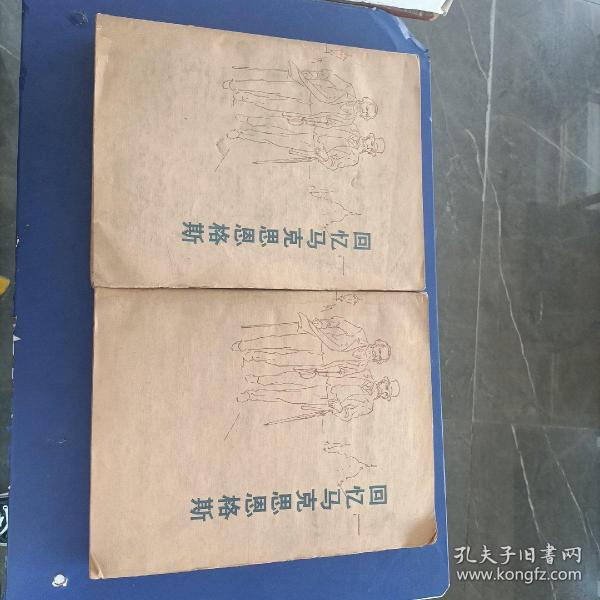 回忆马克思恩格斯
一
回忆马克思恩格斯
一
孔夫子旧書网
www.kongfz.com